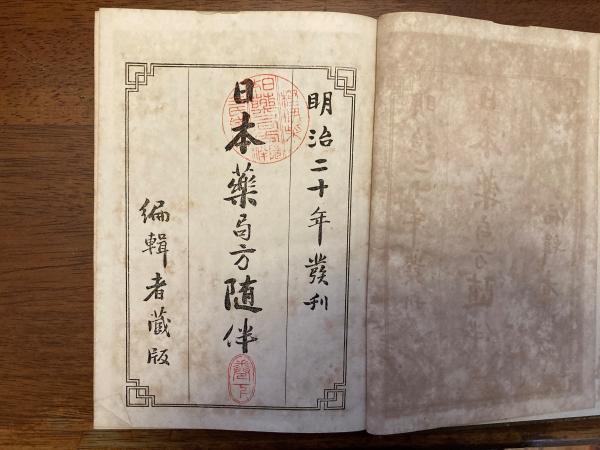 明治二十年發刋
日本藥局方随伴
編輯者蔵版